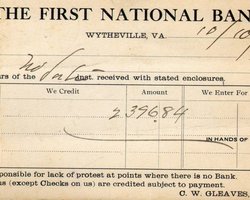 THE FIRST NATIONAL BAN
WYTHEVILLE, VA. 10/10
urs of the inst. received with stated enclosures.
We Credit Amount We Enter For
239684
IN HANDS OF
sponsible for lack of protest at points where there is no Bank.
us (except Checks on us) are credited subject to payment.
C. W. GLEAVES,